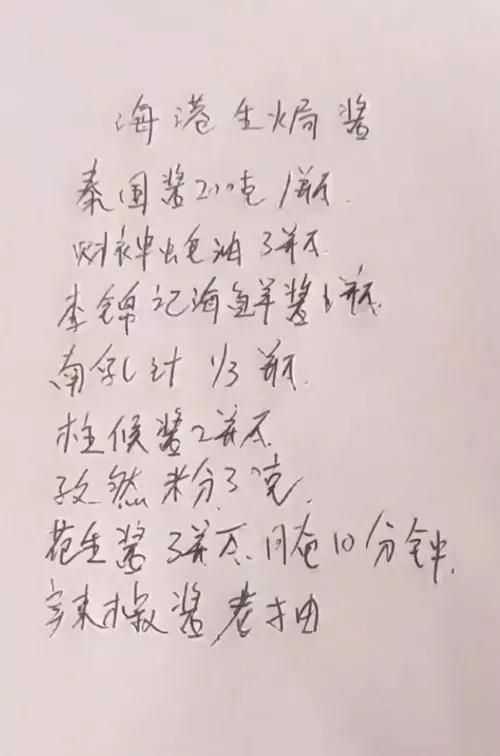 海港生焗酱
泰国酱200克1瓶.
财神蚝油3瓶.
李锦记海鲜酱 瓶.
南乳汁 1/3瓶.
柱候酱2瓶.
孜然粉3克.
花生酱3瓶. 10分钟.
辣椒酱老抽